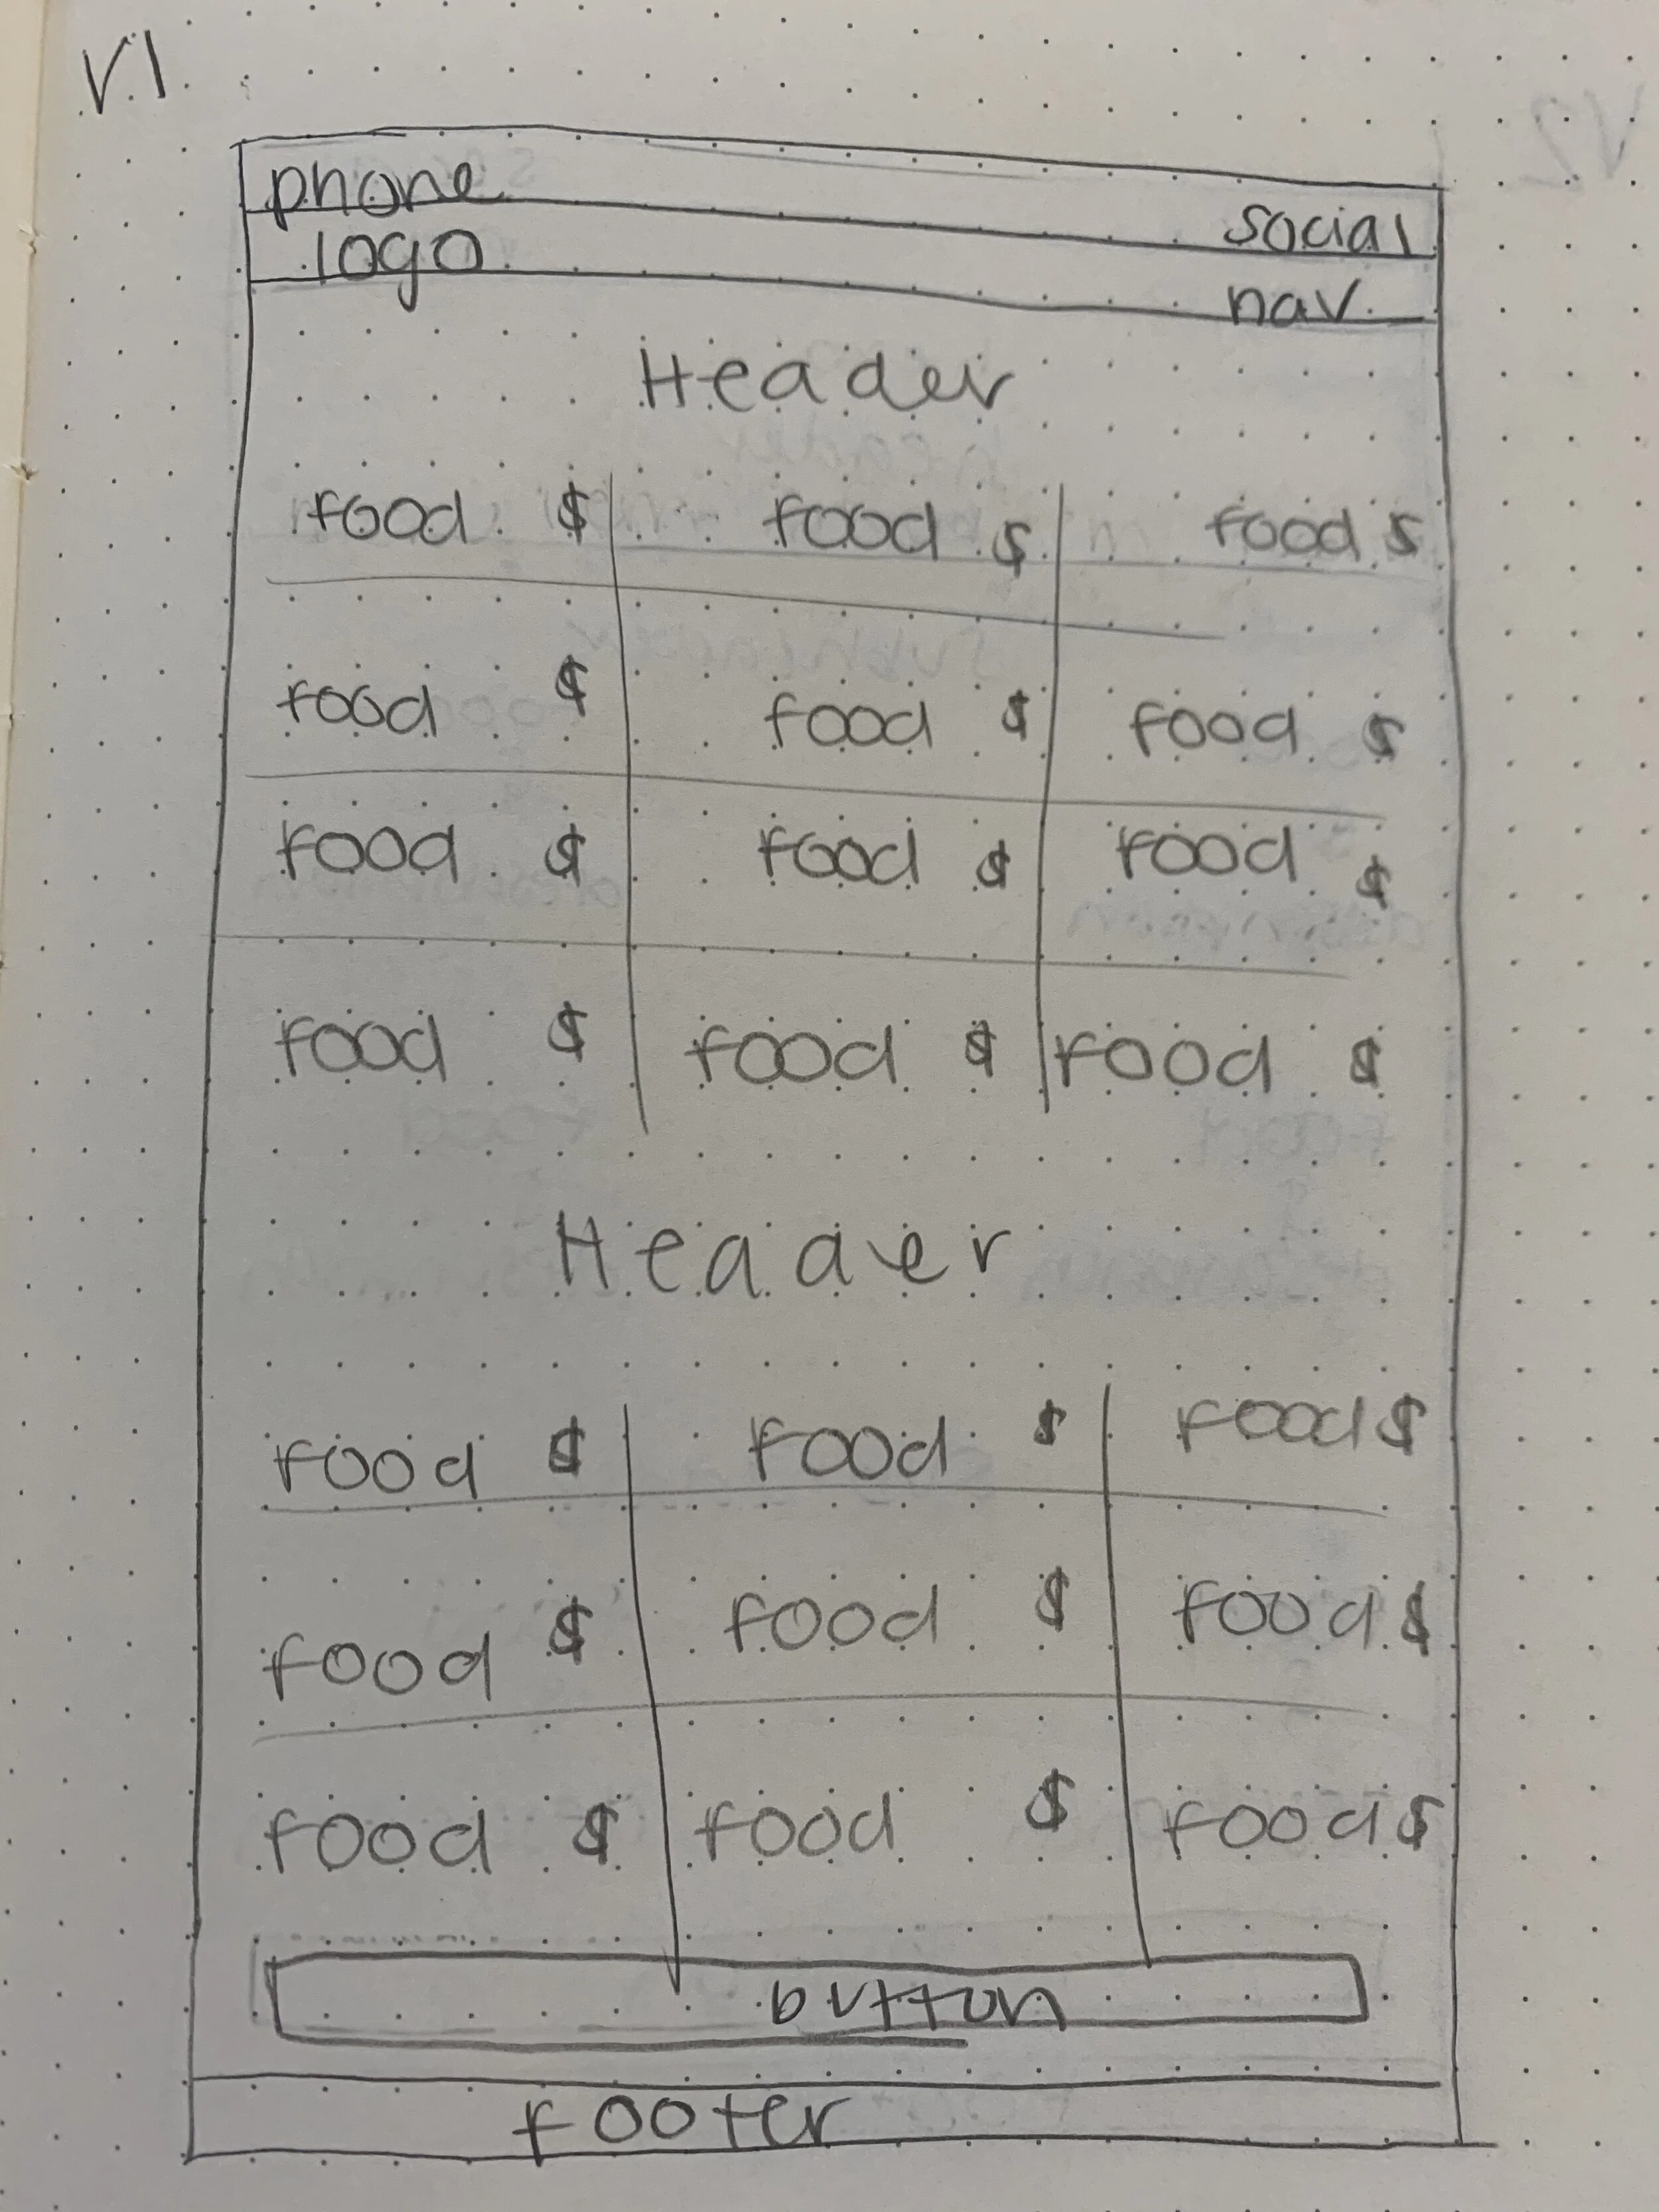 V.1
phone social
logo nav
Header
food $ food $ food $
food $ food $ food $
food $ food $ food $
food $ food $ food $
Header
food $ food $ food $
food $ food $ food $
food $ food $ food $
button
footer
V2